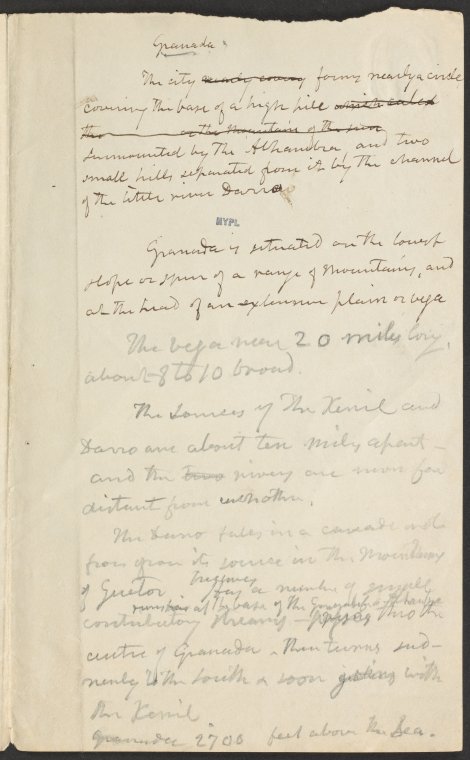 Granada
The city nearly forms nearly a circle
covering the base of a high hill which
the or the Mountain of the
surmounted by the Alhambra and two
small hills separated from it by the channel
of the little river Darro
NYPL
Granada is situated on the lowest
slope or spur of a range of mountains, and
at the head of an extensive plain or vega
The vega near 20 miles long,
about 8 to 10 broad.
The sources of the Xenil and
Darro are about ten miles apart –
and the two rivers are never far
distant from each other.
The Darro falls in a cascade
from its source in the Mountains
of Huetor receives a number of small
running at the base of the
contributory streams – into the
centre of Granada – then turns sud-
denly to the South & soon with
the Xenil
Granada 2700 feet above the Sea.